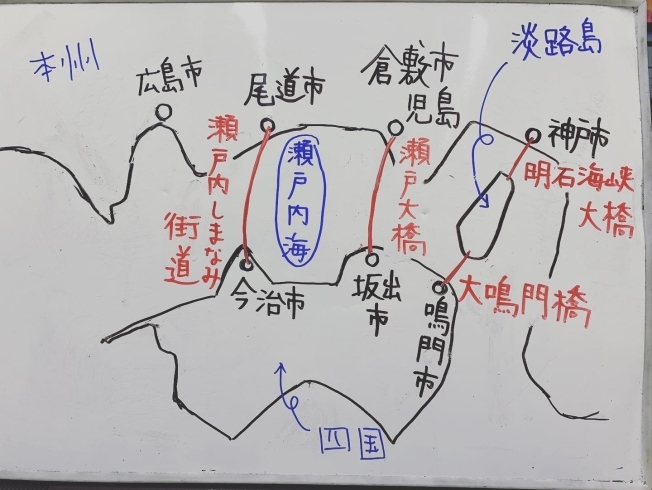 本州
広島市
尾道市
倉敷市
児島
淡路島
神戸市
瀬戸内しまなみ
街道
瀬戸内海
瀬戸大橋
明石海峡
大橋
今治市
坂出
市
鳴門市
大鳴門橋
四国